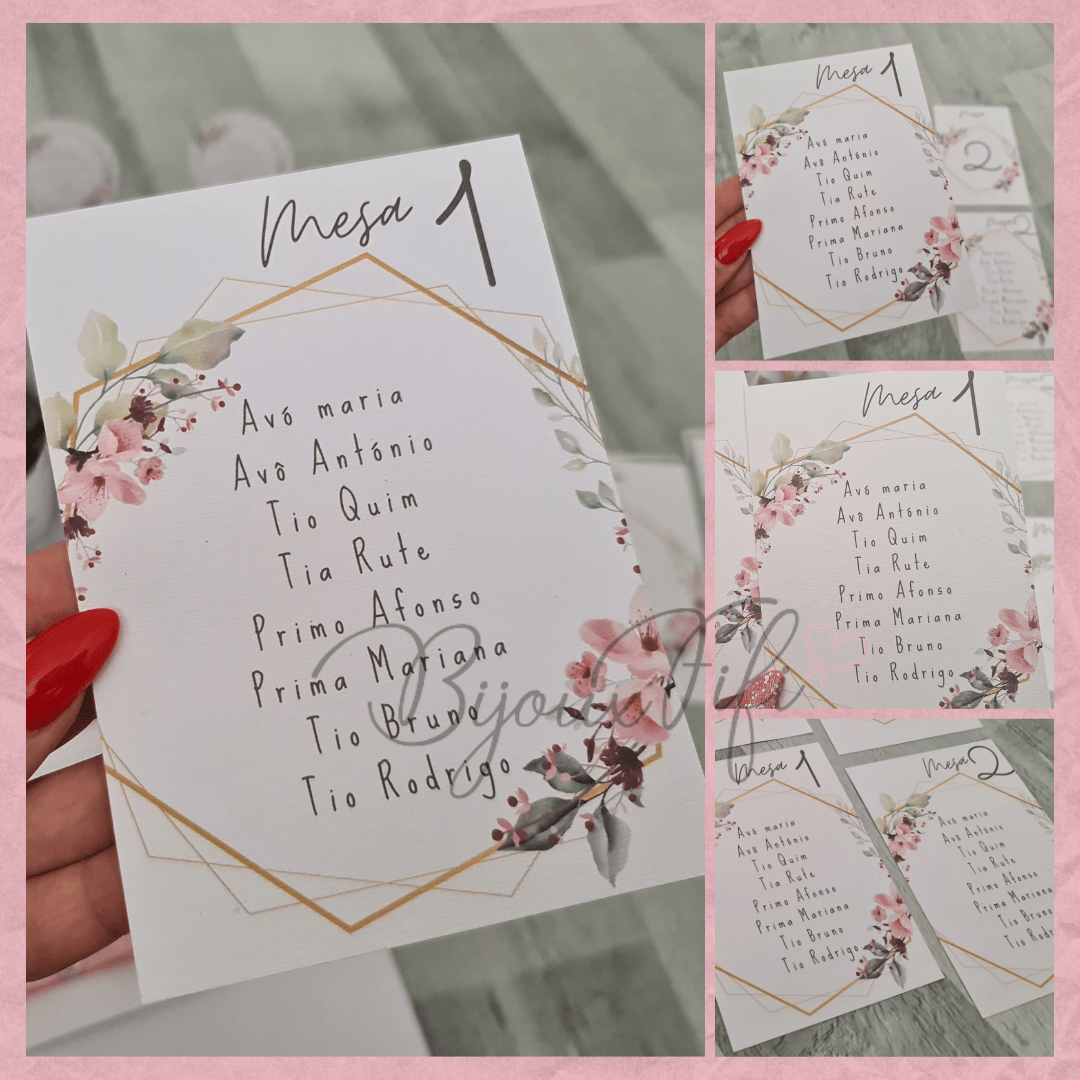 Mesa 1
Avó maria
Avô António
Tio Quim
Tia Rute
Primo Afonso
Prima Mariana
Tio Bruno
Tio Rodrigo
BijouxFifi
Mesa 1
Avó maria
Avô António
Tio Quim
Tia Rute
Primo Afonso
Prima Mariana
Tio Bruno
Tio Rodrigo
Mesa
2
Mesa 1
Avó maria
Avô António
Tio Quim
Tia Rute
Primo Afonso
Prima Mariana
Tio Bruno
Tio Rodrigo
Mesa 1
Avó maria
Avô António
Tio Quim
Tia Rute
Primo Afonso
Prima Mariana
Tio Bruno
Tio Rodrigo
Mesa 2
Avó maria
Avô António
Tio Quim
Tia Rute
Primo Afonso
Prima Mariana
Tio Bruno